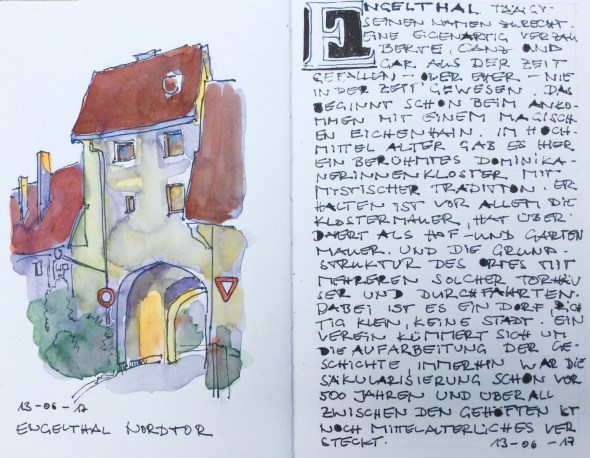 13-06-17
ENGELTHAL NORDTOR
ENGELTHAL TRÄGT
SEINEN NAMEN ZURECHT.
EINE EIGENARTIG VERZAU
BERTE, GANZ UND
GAR AUS DER ZEIT
GEFALLEN - ODER EHER - NIE
IN DER ZEIT GEWESEN. DAS
BEGINNT SCHON BEIM ANKO-
MMEN MIT EINEM MAGISCH
EN EICHENHAIN. IM HOCH-
MITTELALTER GAB ES HIER
EIN BERÜHMTES DOMINIKA-
NERINNENKLOSTER MIT
MYSTISCHER TRADITION. ER
HALTEN IST VOR ALLEM DIE
KLOSTERMAUER, HAT ÜBER-
DAUERT ALS HOF- UND GARTEN
MAUER. UND DIE GRUND-
STRUKTUR DES ORTES MIT
MEHREREN SOLCHER TORHÄU
SER UND DURCHFAHRTEN.
DABEI IST ES EIN DORF, RICH
TIG KLEIN, KEINE STADT. EIN
VEREIN KÜMMERT SICH UM
DIE AUFARBEITUNG DER GE-
SCHICHTE, IMMERHIN WAR DIE
SÄKULARISIERUNG SCHON VOR
500 JAHREN UND ÜBERALL
ZWISCHEN DEN GEHÖFTEN IST
NOCH MITTELALTERLICHES VER
STECKT. 13-06-17